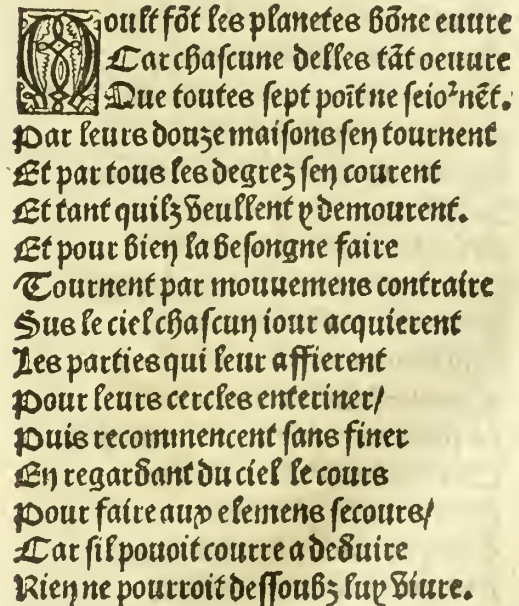 Moult fōt les planetes bōne euure
Car chascune delles tāt oeuure
Que toutes sept poĩt ne seioᵘnēt.
Par leurs douze maisons sen tournent
Et par tous les degrez sen courent
Et tant quilz veullent y demourent.
Et pour bien la besongne faire
Tournent par mouuemens contraire
Sus le ciel chascun iour acquierent
Les parties qui leur affierent
Pour leurs cercles enteriner/
Puis recommencent sans finer
En regardant du ciel le cours
Pour faire aux elemens secours/
Car sil pouoit courre a deduire
Rien ne pourroit dessoubz luy viure.